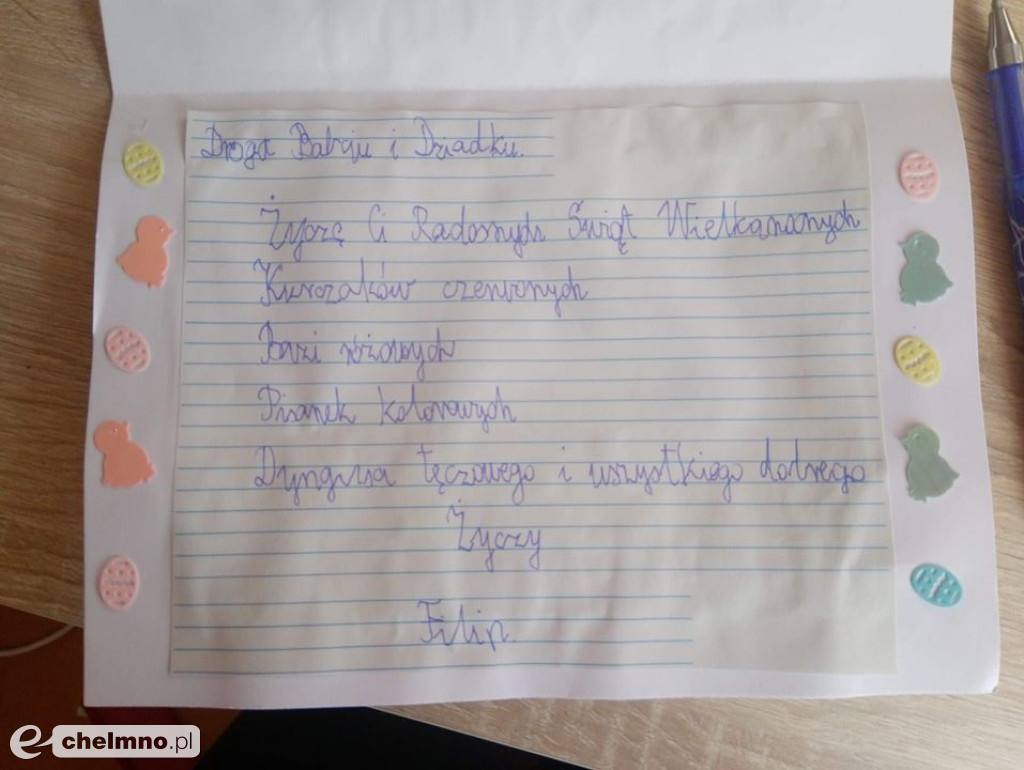 Droga Babciu i Dziadku.
Życzę Ci Radosnych Świąt Wielkanocnych
Kurczaków czerwonych
Bazi różowych
Pisanek kolorowych
Dyngusa tęczowego i wszystkiego dobrego
Życzy
Filip.
e-chelmno.pl